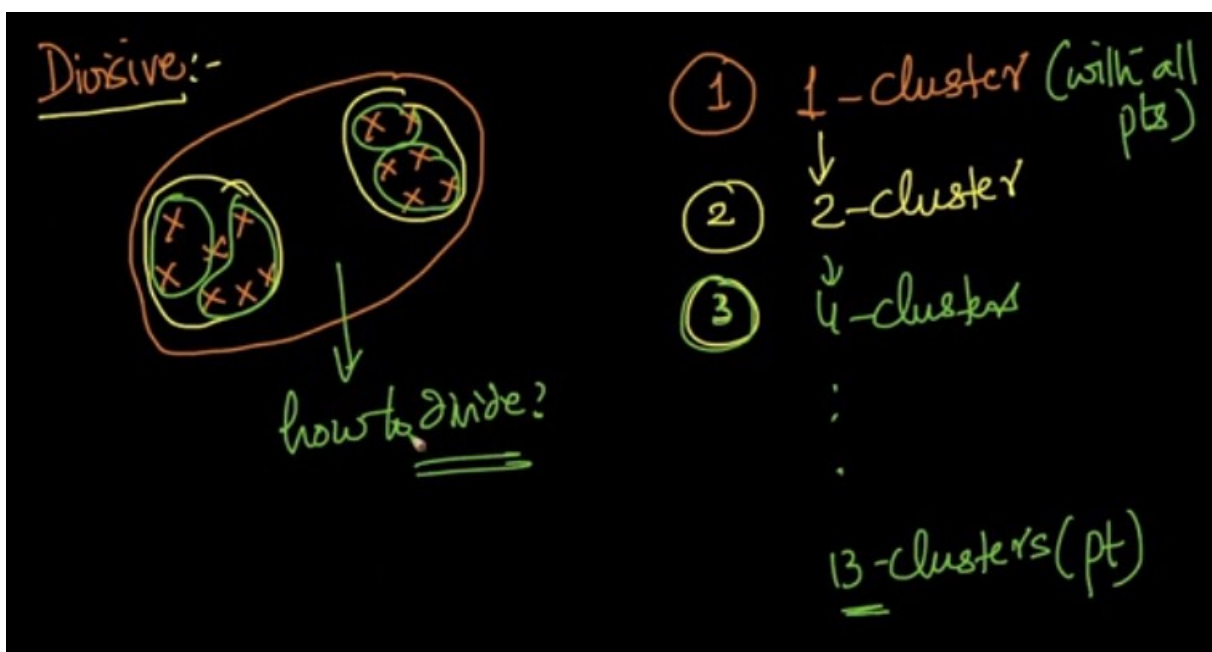 Divisive:-
how to divide?
1 1-cluster (with all
pts)
2 2-cluster
3 4-clusters
13-clusters (pt)